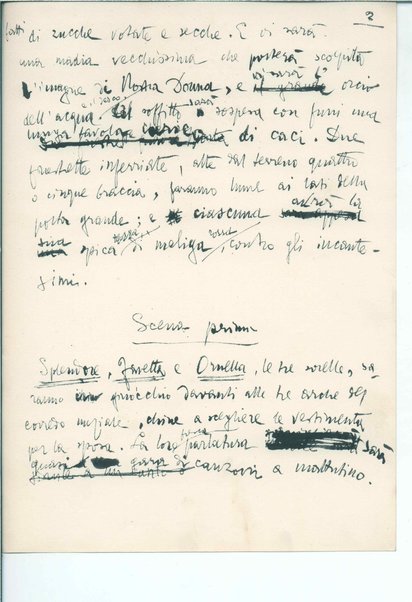 2
fatti di zucche votate e secche. E vi sarà
una madia vecchissima che porterà scolpita
l'imagine di Nostra Donna, e vi sarà l' orcio
dell'acqua e il desco. soffitto sarà sospesa con funi una
di caci. Due
finestrette inferriate, alte dal terreno quattro
o cinque braccia, faranno lume ai lati della
porta grande; e ciascuna avrà la
sua spica di meliga rossa, contro gli incante-
simi.
Scena prima
Splendore, Favetta e Ornella, le tre sorelle, sa-
ranno in ginocchio davanti alle tre arche del
corredo nuziale, chine a scegliere le vestimenta
per la sposa. La loro parlatura sarà
quasi gara di canzoni a mattutino.